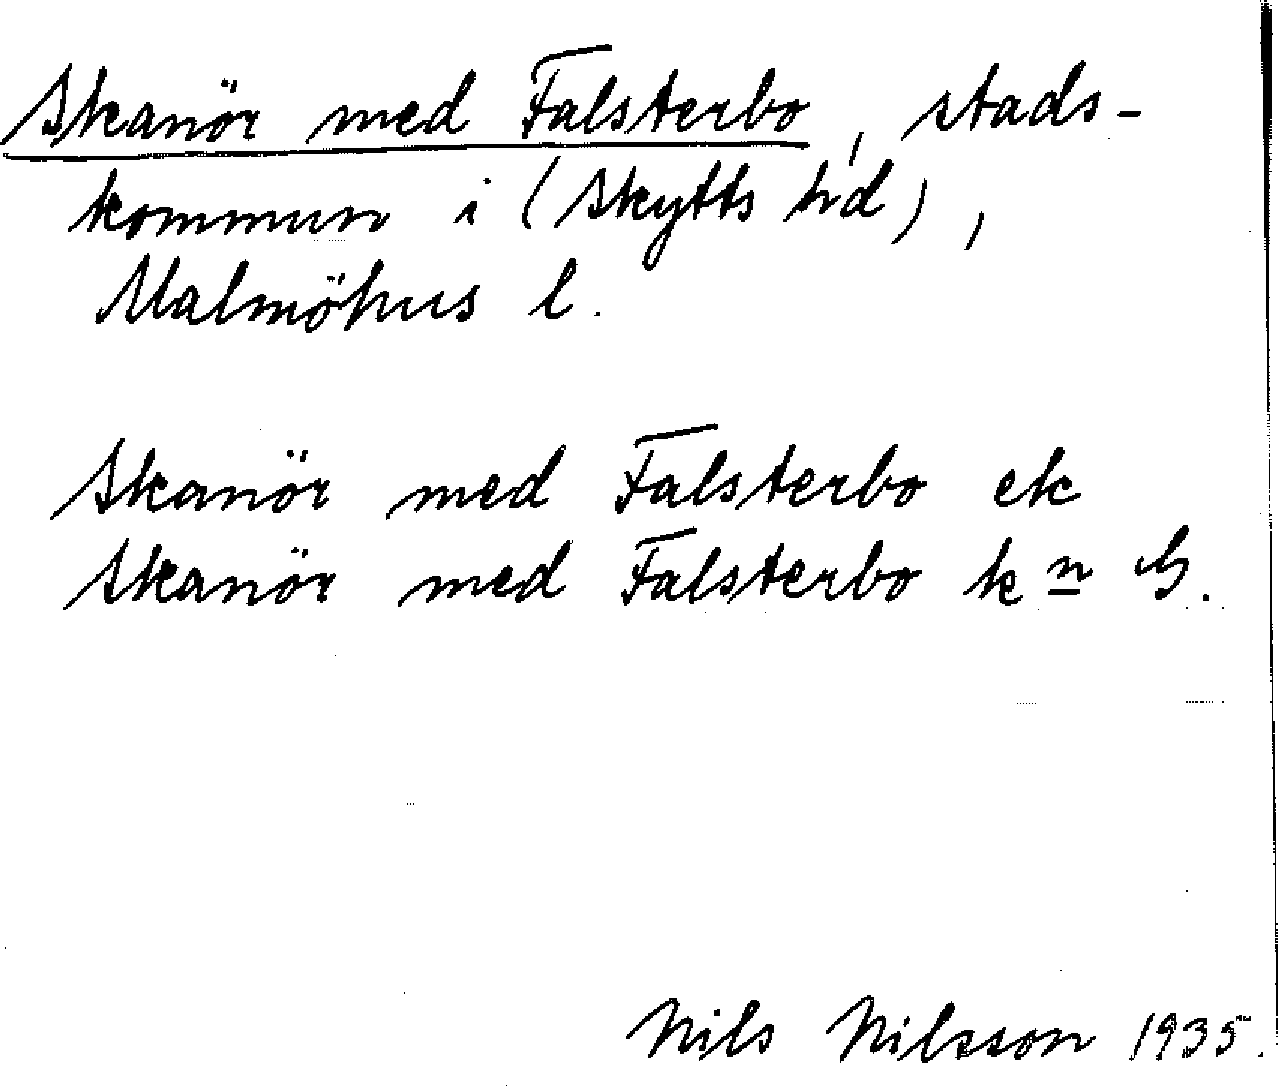 Skanör med Falsterbo, stads-
kommun i (Skytts hd),
Malmöhus l.
Skanör med Falsterbo ek
Skanör med Falsterbo kn
Nils Nilsson 1935.